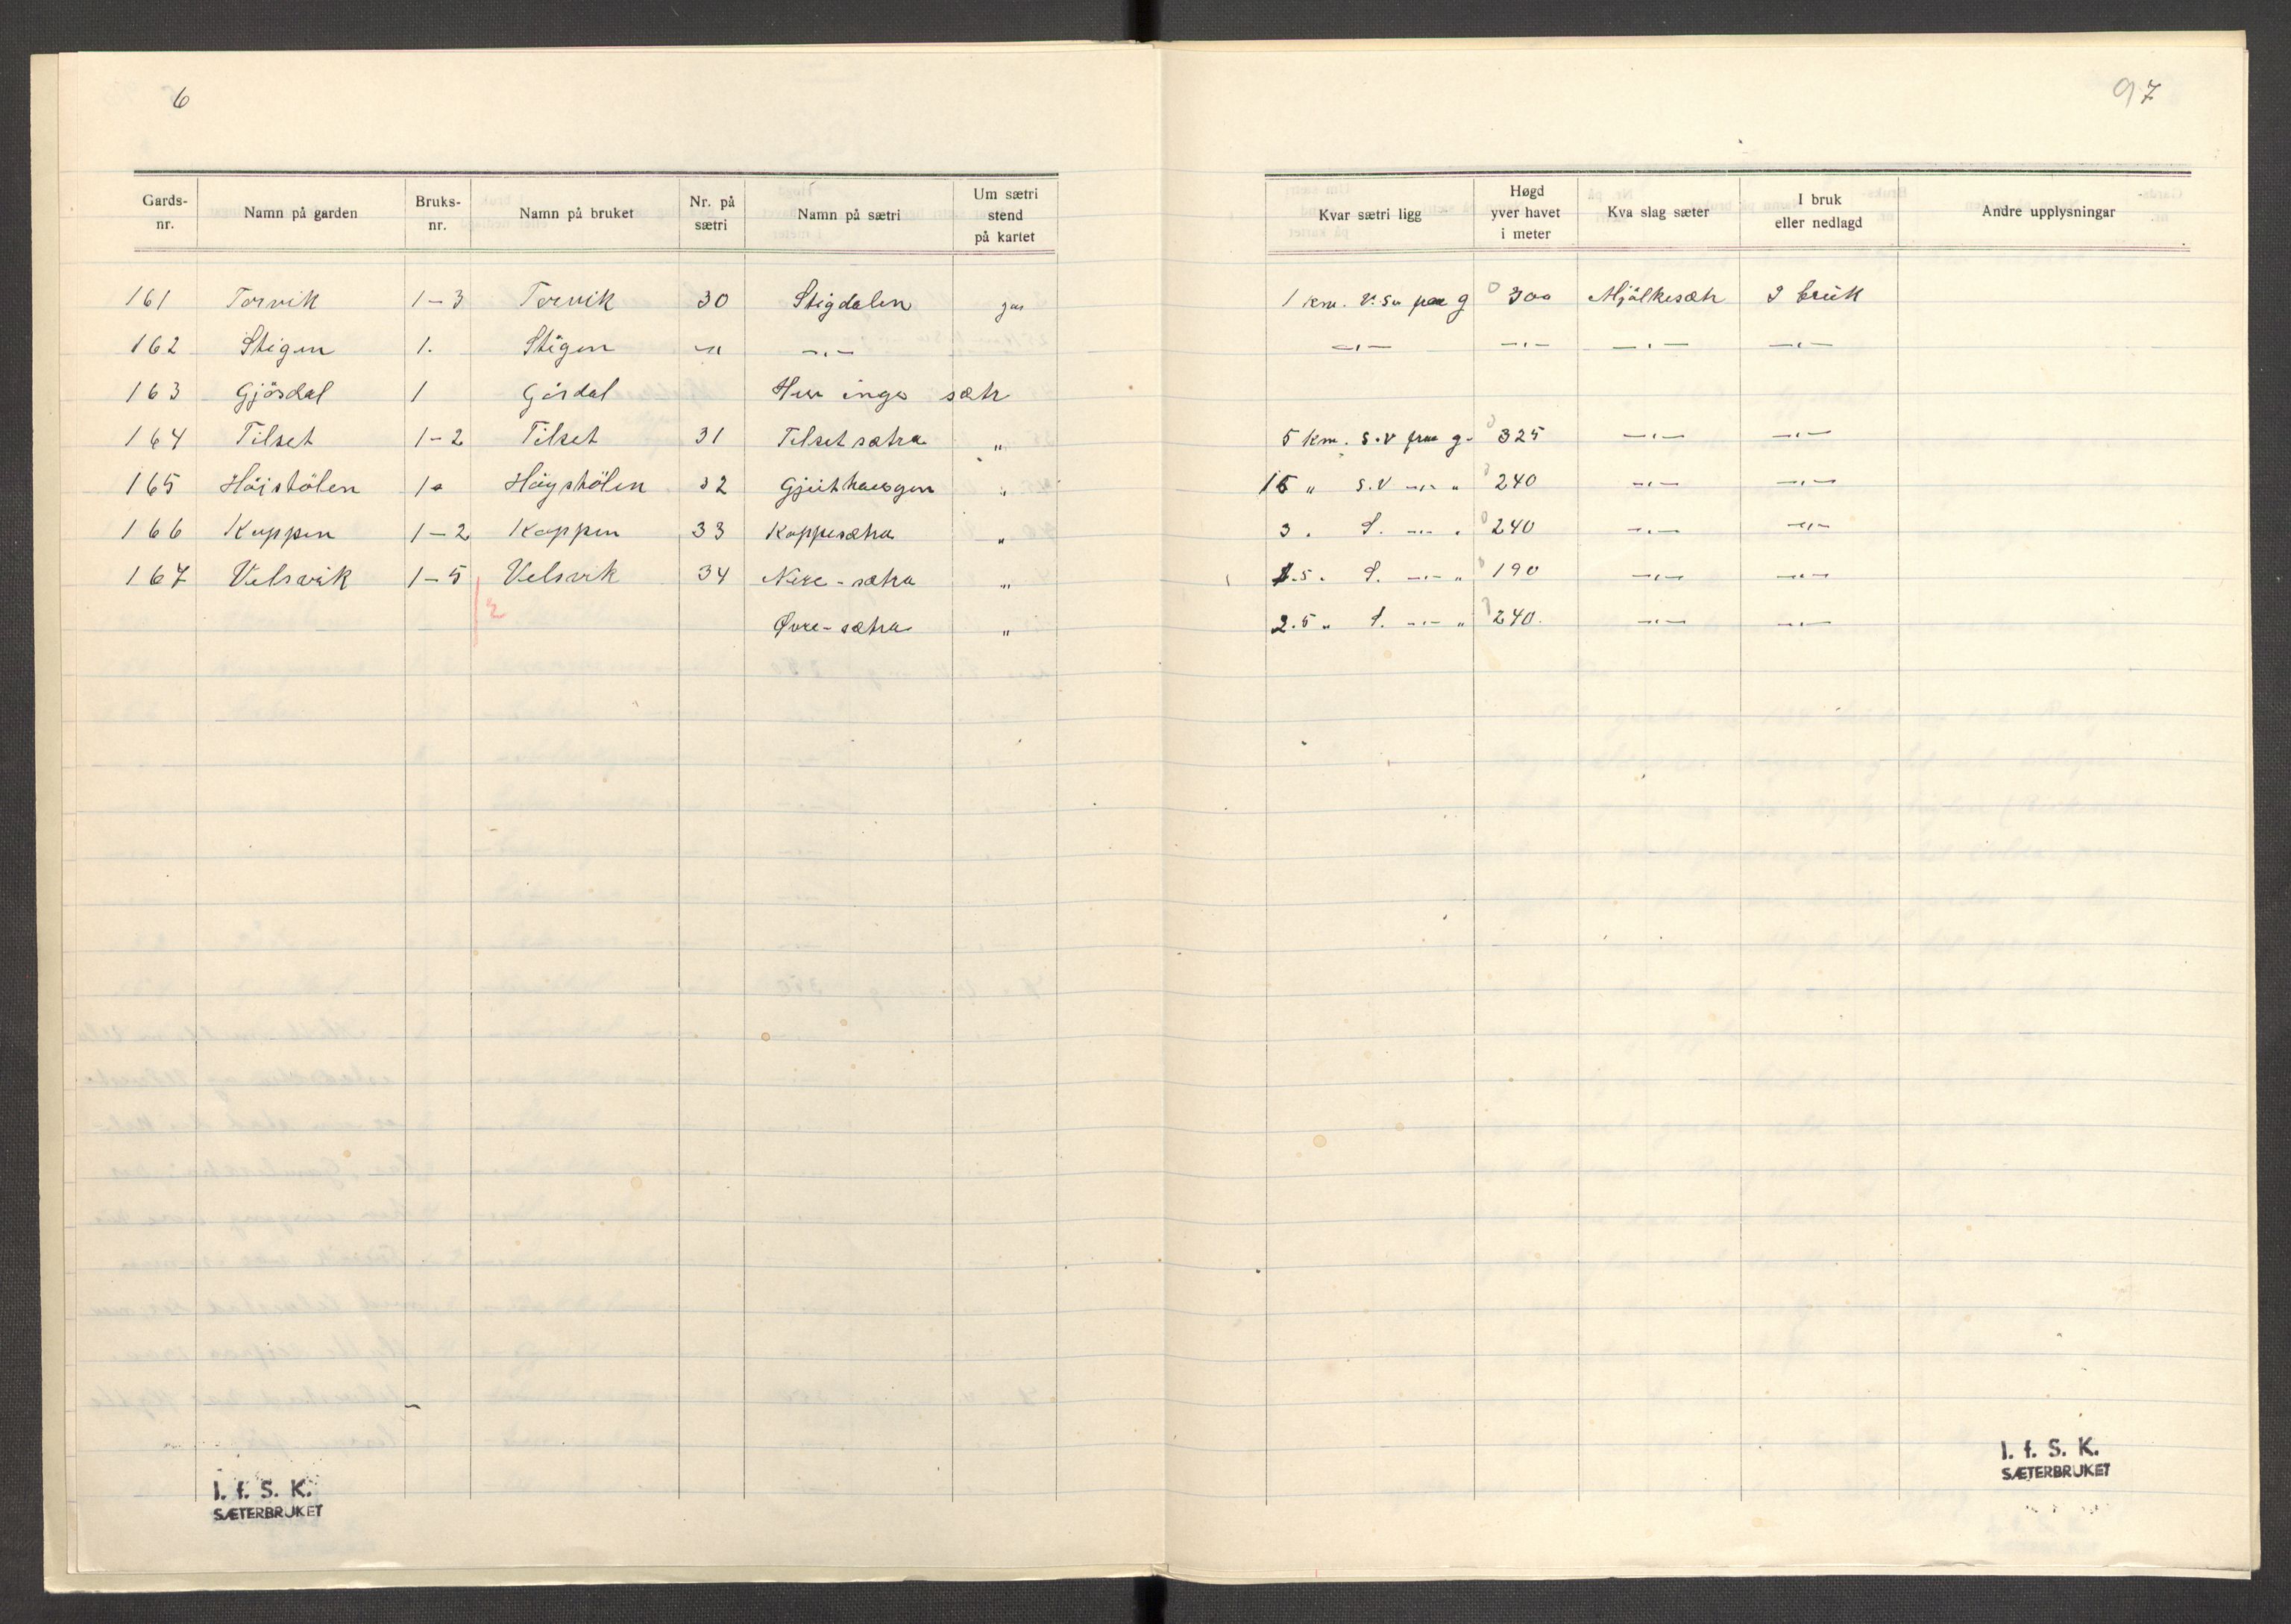 6
97
Gards-nr. Namn på garden Bruks-nr. Namn på bruket Nr. på sætri Namn på sætri Um sætri stend på kartet Kvar sætri ligg Høgd yver havet i meter Kva slag sæter I bruk eller nedlagd Andre upplysningar
161 Torvik 1-3 Torvik 30 Stigdalen jau 1 km. V. g 300 Mjölkesætr I bruk
162 Stigen 1. Stigen -"- -"- -"- -"- -"- -"-
163 Gjösdal 1 Gösdal Her inga sætr
164 Tilset 1-2 Tilset 31 Tilset sætra " 5 km. S.V fraa g. 325 -"- -"-
165 Höistölen 1 Höygstölen 32 Gjeithaugen " 15 " S.V -"- " 240 -"- -"-
166 Koppen 1-2 Koppen 33 Koppesætra " 3 . S. -"- . 240 -"- -"-
167 Velsvik 1-5 Velsvik 34 Nere-sætra " 1.5 . S. -"- " 190 -"- -"-
2
Øvre-sætra " 2.5 " S. -"- " 240. -"- -"-
I. f. S. K.
SÆTERBRUKET
I. f. S. K.
SÆTERBRUKET